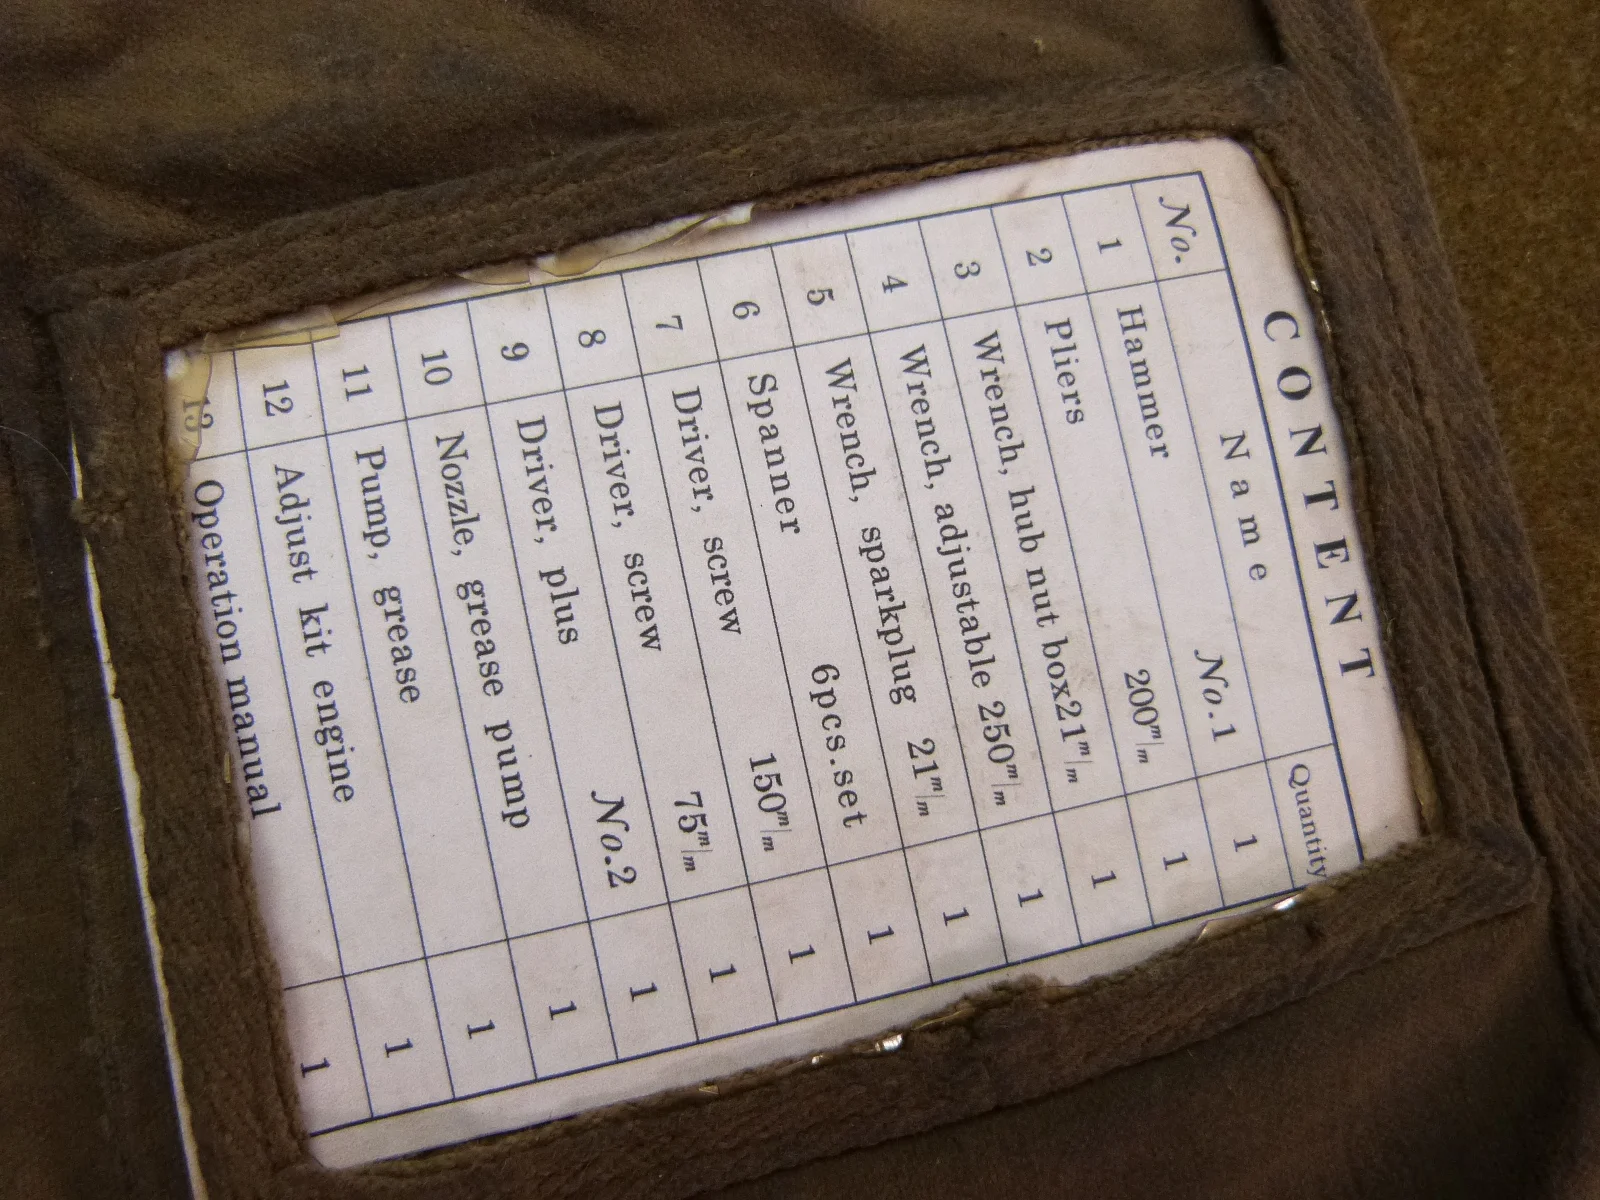 CONTENT
No. Name Quantity
1 Hammer No.1 1
2 Pliers 200m/m 1
3 Wrench, hub nut box21m/m 1
4 Wrench, adjustable 250m/m 1
5 Wrench, sparkplug 21m/m 1
6 Spanner 6pcs.set 1
7 Driver, screw 150m/m 1
8 Driver, screw 75m/m 1
9 Driver, plus No.2 1
10 Nozzle, grease pump 1
11 Pump, grease 1
12 Adjust kit engine 1
13 Operation manual 1